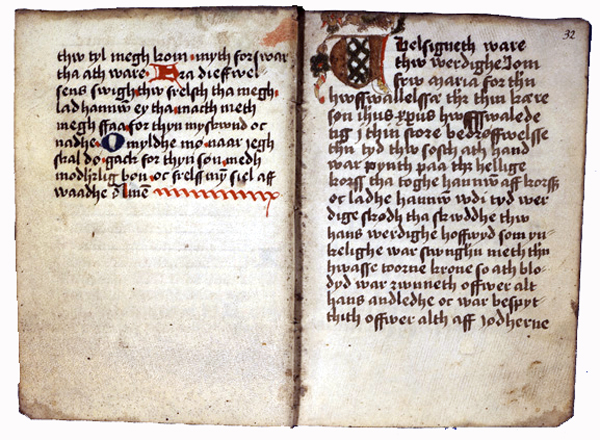 thw tyl megh kom · myth forswar
tha ath ware · Fra dieffwel
sens swigh thw frelsth tha megh ·
lad hannwm ey tha macth meth
megh ffaa for thyn myskwnd oc
nadhe · O myldhe mo · naar jegh
skal dø · gack for thyn søn medh
modhrlig bøn · oc frelss my siel aff
waadhe Amen
32
Velsigneth ware
thw werdighe Jom
frw maria for thn
hwsswallelssæ thr thin kære
søn ihus xpus hwsswalede
tig j thin store bedrøffwelsse
thn tyd thw sosth ath hand
war pynth paa thz hellige
korss tha toghe hannwm aff korss
oc ladhe hannwm wdi tyd wer
dige skødh tha skwddhe thw
hans werdighe hoffwyd som yn-
kelighe war swnghn meth thn
hwasse toorne krone so ath blo-
dyd war rwnneth offwer alt
hans andledhe oc war bespyt-
thith offwer alth aff jødherne